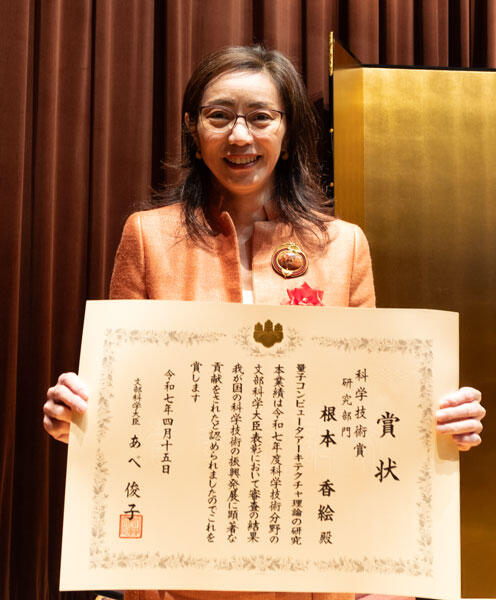 賞状
科学技術賞
研究部門
根本 香絵 殿
量子コンピュータアーキテクチャ理論の研究
本業績は令和七年度科学技術分野の
文部科学大臣表彰において審査の結果
我が国の科学技術の振興発展に顕著な
貢献をされたと認められましたのでこれを
賞します
令和七年四月十五日
文部科学大臣 あべ 俊子